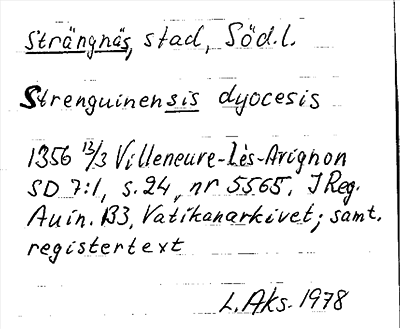 Strängnäs, stad, Söd.l.
Strenguinensis dyocesis
1356 12/3 Villeneure-Lès-Avignon
SD 7:1, s.24, nr 5565. I Reg.
Auin. 133, Vatikanarkivet; samt.
registertext
L.Aks. 1978